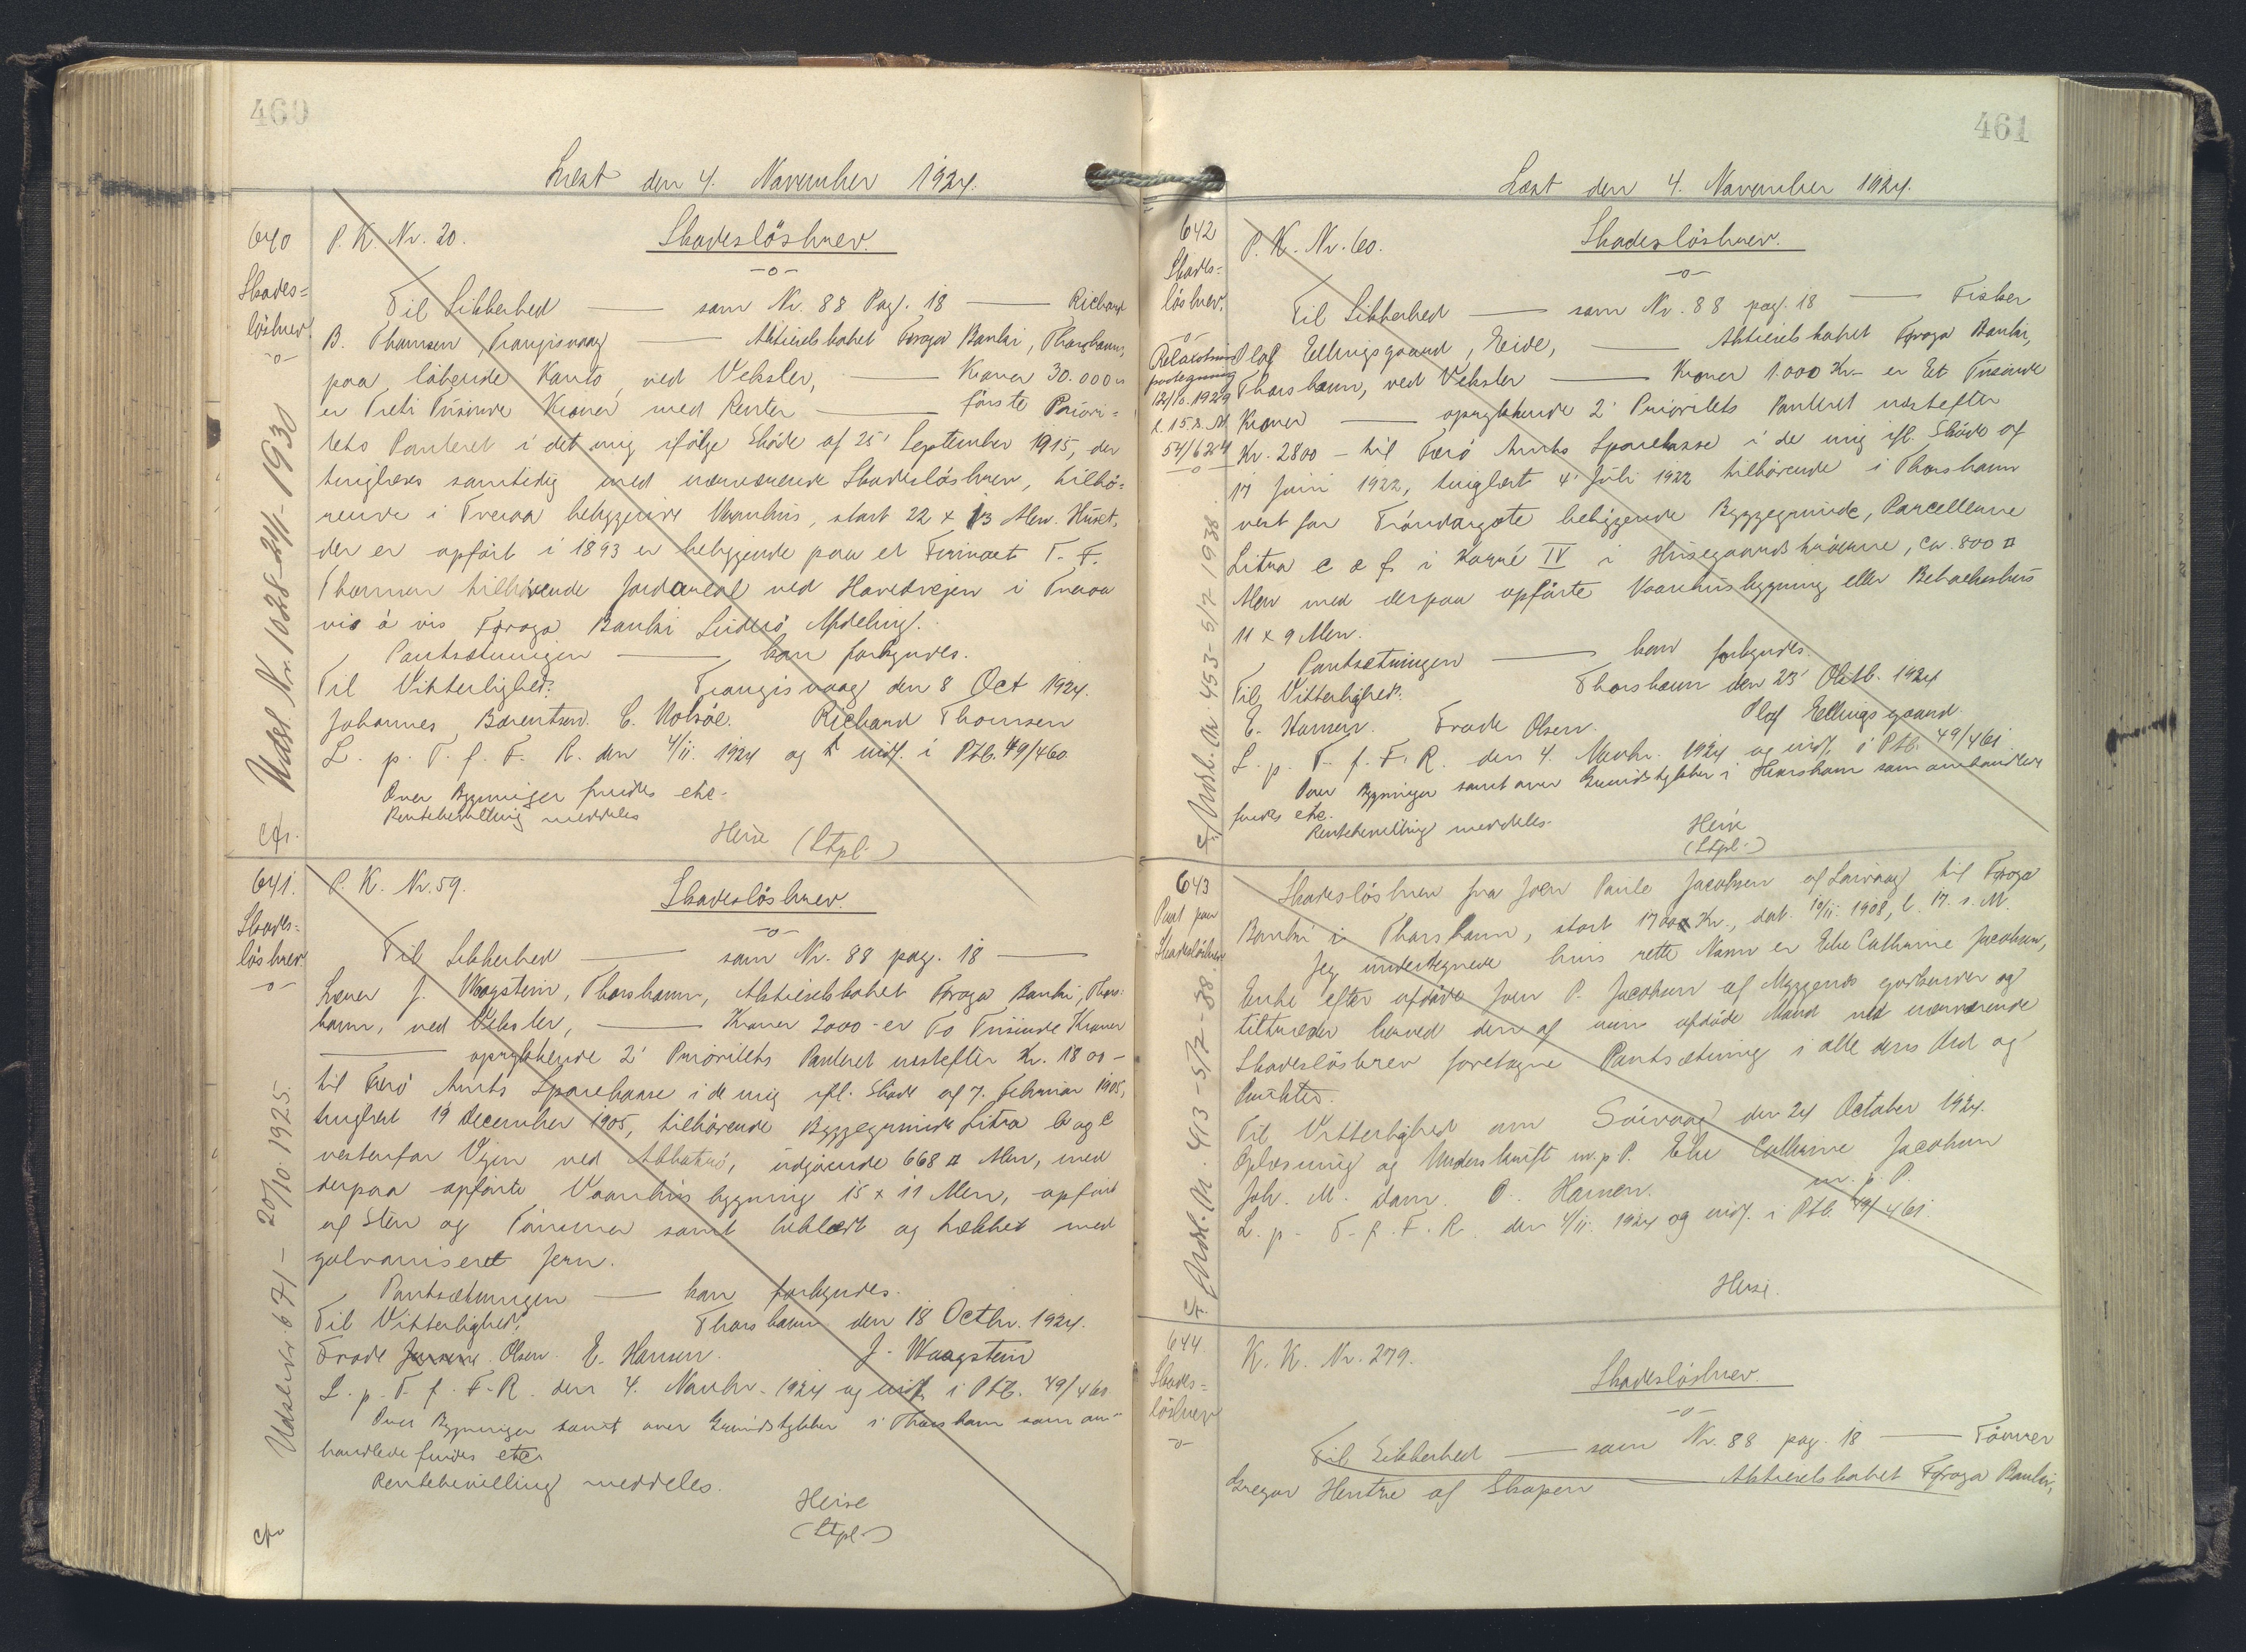 460
Læst den 4. November 1924.
640
Skades=
løsbrev.
-o-
Udsl. Nr. 1028-24/1-1930
cfr.
P. K. Nr. 20.
Skadesløsbrev.
-o-
Til Sikkerhed — som Nr. 88 Pag. 18 — Richard
B. Thomsen, Trangisvaag — Aktieselskabet Føroya Banki, Thorshavn,
paa løbende Konto, ved Veksler, — Kroner 30.000
er Treti Tusinde Kroner med Renter — første Priori=
tets Panteret i det mig ifølge Skøde af 25' September 1915, der
tinglæses samtidig med nærværende Skadesløsbrev, tilhø=
rende i Tveraa beliggende Vaanhus, stort 22 x 13 Alen. Huset,
der er opført i 1893 er beliggende paa et Firmaet T. F.
Thomsen tilhørende Jordareal ved Hovedvejen i Tveraa
vis à vis Føroya Banki Suderø Afdeling.
Pantsætningen — kan forkyndes.
Til Vitterlighed: Trangisvaag den 8 Oct 1924.
Johannes Bærentsen. C. Holsøe. Richard Thomsen
L. p. T. f. F. R. den 4/11. 1924 og indf. i Ptb. 49/460
Over Bygninger findes etc.
Rentebevilling meddeles
Heise (Stpl.)
641.
Skades=
løsbrev
-o-
Udsl. Nr. 671 - 20/10 1925.
cfr
P. K. Nr. 59.
Skadesløsbrev.
-o-
Til Sikkerhed — som Nr. 88 pag. 18 —
Lærer J. Waagstein, Thorshavn, Aktieselskabet Føroya Banki, Thors-
havn, ved Veksler, — Kroner 2000 - er To Tusinde Kroner
— oprykkende 2' Prioritets Panteret næstefter Kr. 1800 -
til Færø Amts Sparekasse i de mig ifl. Skøde af 7. Februar 1905,
tinglæst 19 december 1905, tilhørende Byggegrunde Litra b og c
vestenfor Vejen ved Abbatrø, udgørende 668 □ Alen, med
derpaa opførte Vaanhusbygning 15 x 11 Alen, opført
af Sten og Tømmer samt beklædt og tækket med
galvaniseret Jern.
Pantsætningen — kan forkyndes.
Til Vitterlighed: Thorshavn den 18 Octbr. 1924.
Frode Olsen. E. Hansen. J. Waagstein
L. p. T. f. F. R. den 4. Novbr. 1924 og indf. i Ptb. 49/461
Over Bygninger samt over Grundstykker i Thorshavn som om-
handlede findes etc.
Rentebevilling meddeles.
Heise
(Stpl.)
461
Læst den 4. November 1924.
642
Skades=
løsbrev.
-o-
12/10. 1929
l. 15 s. M.
54/624
-o-
cfr. Udsl. Nr. 453 - 5/7 1938.
P. K. Nr. 60.
Skadesløsbrev.
-o-
Til Sikkerhed — som Nr. 88 pag. 18 — Fisker
Olaf Ellingsgaard, Eide, — Aktieselskabet Føroya Banki,
Thorshavn, ved Veksler — Kroner 1.000 Kr - er Et Tusinde
Kroner — oprykkende 2' Prioritets Panteret næstefter
Kr. 2800 - til Færø Amts Sparekasse i de mig ifl. Skøde af
17 Juni 1922, tinglæst 4' Juli 1922 tilhørende i Thorshavn
vest for Tróndargøte beliggende Byggegrunde, Parcellerne
Litra e & f i Karré IV i Husegaards trøerne, ca. 800 □
Alen med derpaa opførte Vaanhusbygning eller Beboelseshus
11 x 9 Alen.
Pantsætningen — kan forkyndes.
Til Vitterlighed: Thorshavn den 23' Oktb. 1924
E. Hansen. Frode Olsen. Olaf Ellingsgaard.
L. p. T. f. F. R. den 4. Novbr. 1924 og indf. i Ptb. 49/461
Over Bygninger samt over Grundstykker i Thorshavn som omhandlede
findes etc.
Rentebevilling meddeles.
Heise
(Stpl.)
643
Paat. paa
Skadesløsbrev
cfr. Udsl. Nr. 413 - 5/7 - 38.
Skadesløsbrev fra Joen Paule Jacobsen af Sørvaag til Føroya
Banki i Thorshavn, stort 1700 Kr., dat. 10/11. 1908, l. 17. s. M.
Jeg undertegnede hvis rette Navn er Elsie Cathrine Jacobsen,
Enke efter afdøde Joen P. Jacobsen af Myggenæs godkender og
tiltræder herved den af min afdøde Mand ved nærværende
Skadesløsbrev foretagne Pantsætning i alle dens Ord og
Punkter.
Til Vitterlighed om Sørvaag den 24 October 1924.
Oplæsning og Underskrift m. p. P. Cathrine Jacobsen
Joh. M. Dam. P. Hansen. m. p. P.
L. p. T. f. F. R. den 4/11. 1924 og indf. i Ptb. 49/461.
Heise.
644.
Skades=
løsbrev
-o-
K. K. Nr. 279.
Skadesløsbrev.
-o-
Til Sikkerhed — som Nr. 88 pag. 18 — Tømrer
Gregor Hentze af Skopen — Aktieselskabet Føroya Banki,